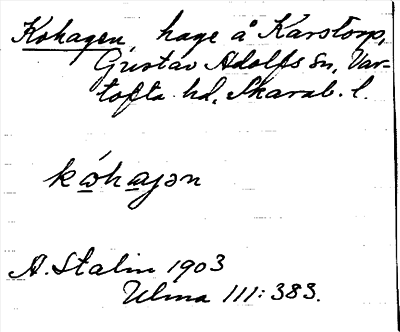 Kohagen, hage å Karstorp,
Gustav Adolfs sn, Var-
tofta hd, Skarab. l.
kóhajən
A. Stalin 1903
Ulma 111:383.